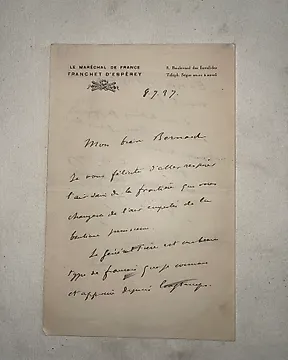 LE MARÉCHAL DE FRANCE
FRANCHET D'ESPÈREY
6, Boulevard des Invalides
Téléph. Ségur
8.7.27.
Mon cher Bernard
Je vous félicite d'aller respirer
l'air sain de la frontière qui vous
changera de l'air empesté de la
Le général est un beau
type de français que je connais
et apprécie depuis longtemps.